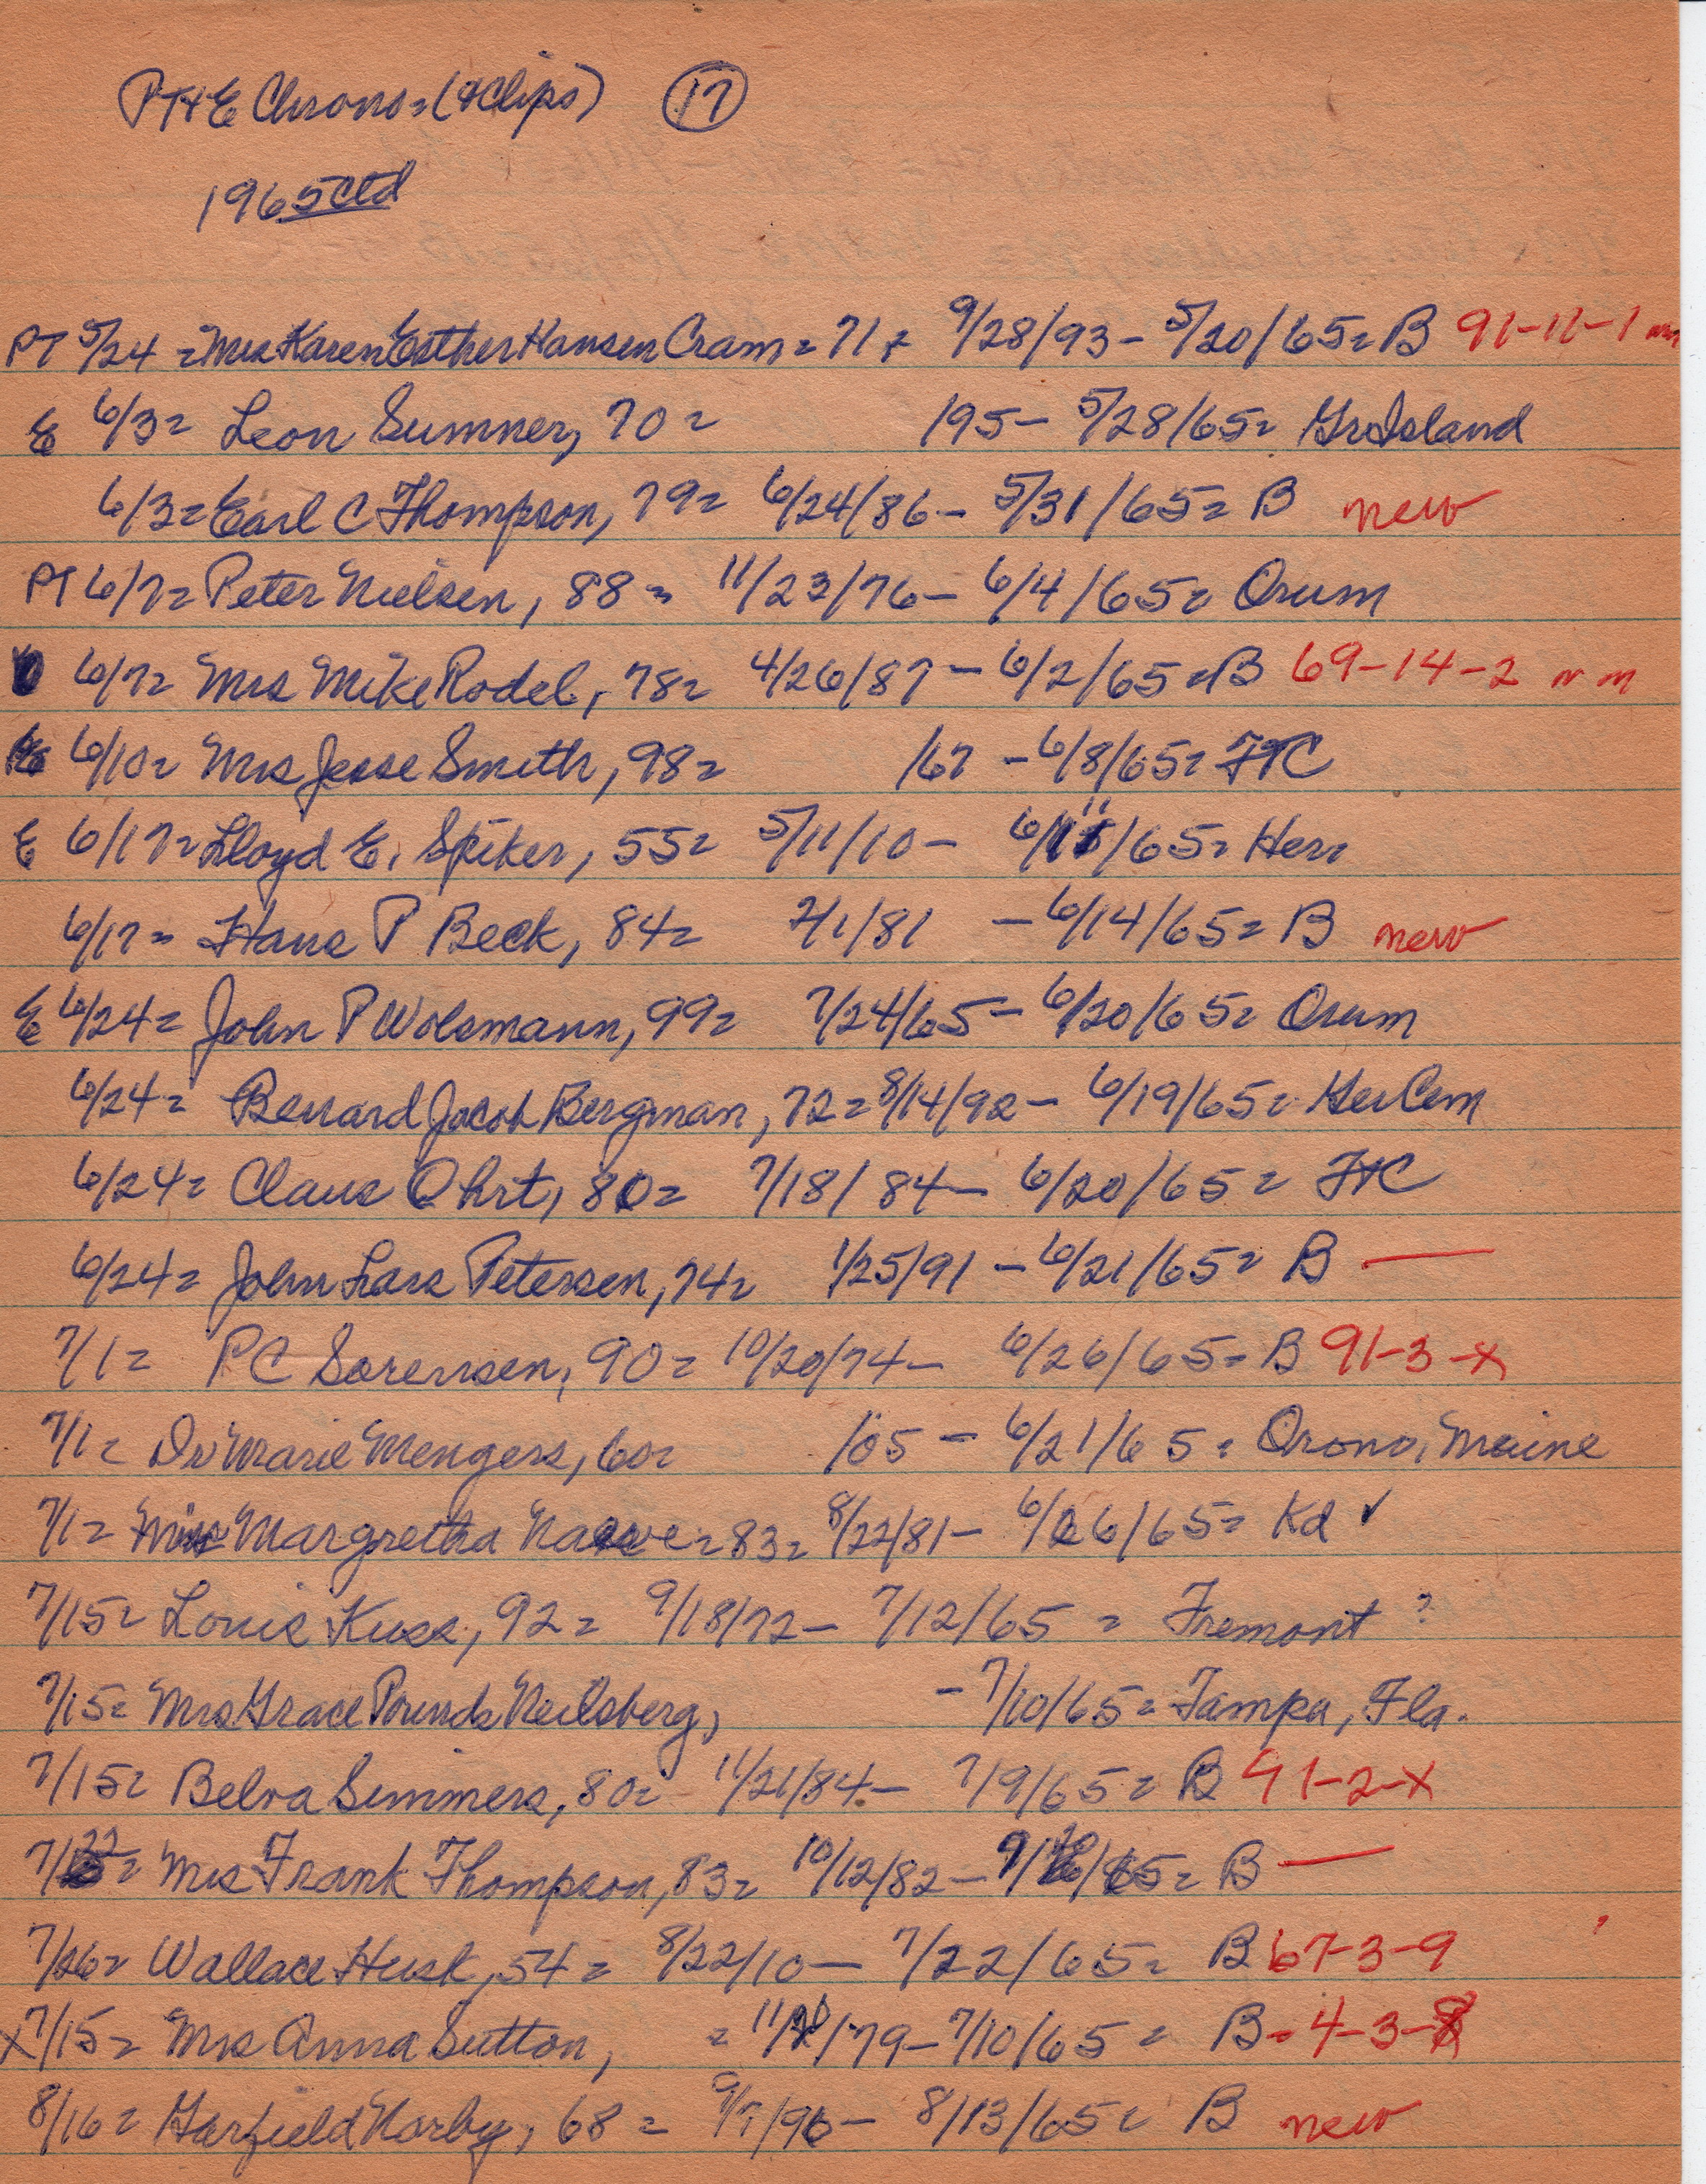 PT+E Chrono=(+Clips) 17
1965 ctd
PT 5/24 = Mrs Karen Esther Hansen Cram = 71 = 9/28/93 - 5/20/65 = B 91-11-1
E 6/3 = Leon Sumner, 70 = /95 - 5/28/65 = Gr Island
6/3 = Earl C Thompson, 79 = 6/24/86 - 5/31/65 = B new
PT 6/7 = Peter Nielsen, 88 = 11/23/76 - 6/4/65 = Orum
6/7 = Mrs Mike Rodel, 78 = 4/26/87 - 6/2/65 = B 69-14-2 nm
6/10 = Mrs Jesse Smith, 98 = /67 - 6/8/65 = FTC
E 6/17 = Lloyd E. Spiker, 55 = 5/11/10 - 6/11/65 = Her
6/17 = Hans P Beck, 84 = 2/1/81 - 6/14/65 = B new
E 6/24 = John P Wolsmann, 99 = 7/24/65 - 6/20/65 = Orum
6/24 = Benard Jacob Bergman, 72 = 8/14/92 - 6/19/65 = Her Cem
6/24 = Claus Ohrt, 80 = 7/18/84 - 6/20/65 = FTC
6/24 = John Lars Petersen, 74 = 1/25/91 - 6/21/65 = B —
7/1 = PC Sorensen, 90 = 10/20/74 - 6/26/65 = B 91-3-x
7/1 = Dr Marie Mengers, 60 = /05 - 6/21/65 = Orono, Maine
7/1 = Miss Margretha Naeve = 83 = 8/22/81 - 6/26/65 = Kd ✓
7/15 = Louis Kuss, 92 = 9/18/72 - 7/12/65 = Fremont ?
7/15 = Mrs Grace Pounds Neilsberg, - 7/10/65 = Tampa, Fla.
7/15 = Belva Simmers, 80 = 11/21/84 - 7/9/65 = B 91-2-x
7/22 = Mrs Frank Thompson, 83 = 10/12/82 - /65 = B —
7/26 = Wallace Husk, 54 = 8/22/10 - 7/22/65 = B 67-3-9
x 7/15 = Mrs Anna Sutton, = /79 - 7/10/65 = B - 4-3-
8/16 = Garfield Norby, 68 = 9/7/96 - 8/13/65 = B new